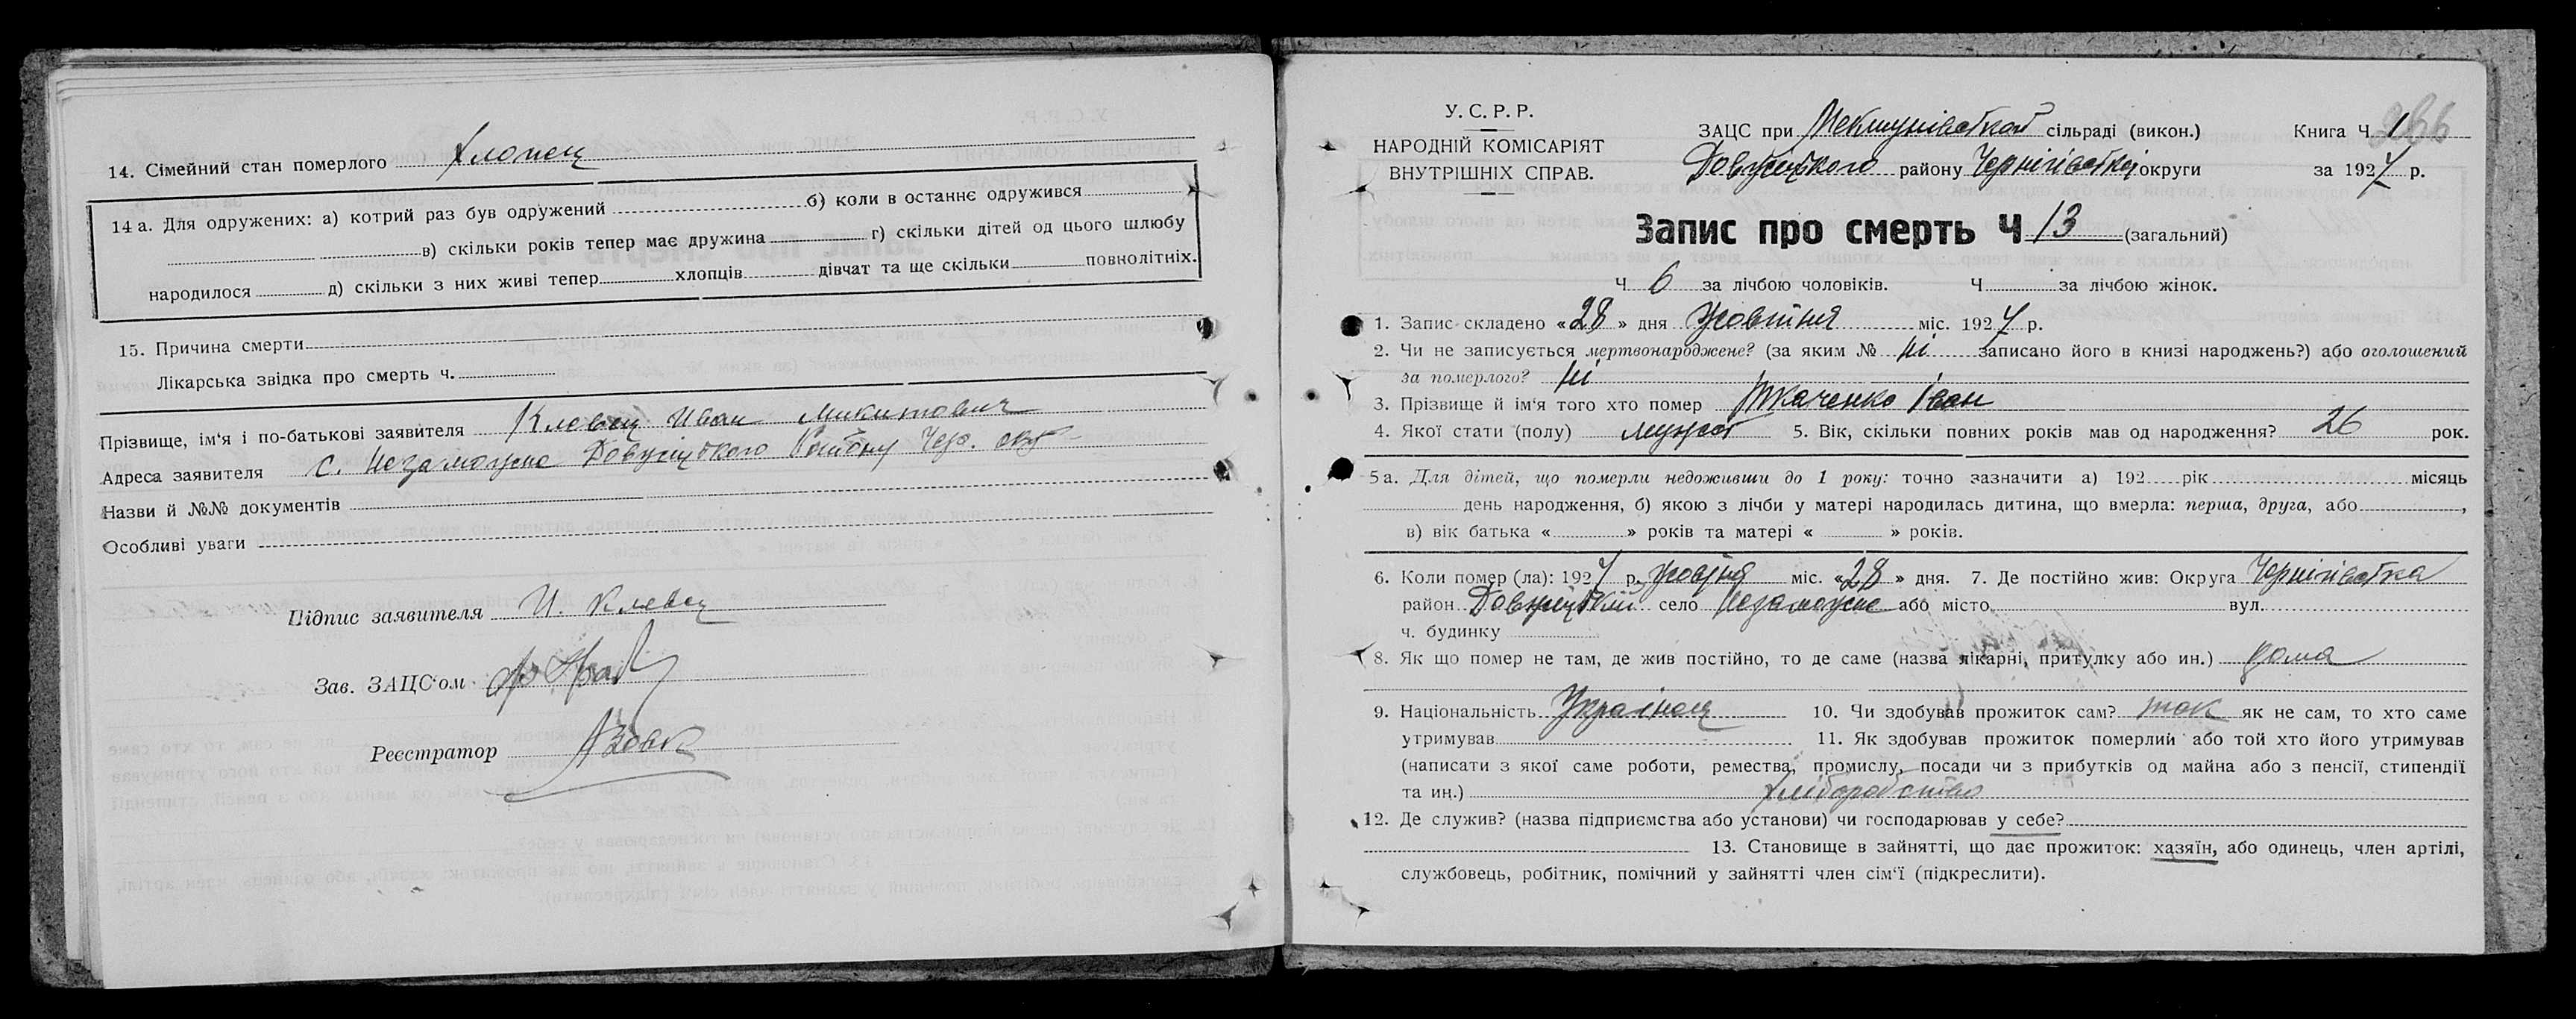 14. Сімейний стан померлого Хлопец
14 а. Для одружених: а) котрий раз був одружений б) коли в останнє одружився
в) скільки років тепер має дружина г) скільки дітей од цього шлюбу
народилося д) скільки з них живі тепер хлопців дівчат та ще скільки повнолітніх.
15. Причина смерти
Лікарська звідка про смерть ч.
Прізвище, ім'я і по-батькові заявителя Клевец Иван Микитович
Адреса заявителя с. Незаможне Довжицького Району Черн. окр
Назви й №№ документів
Особливі уваги
Підпис заявителя И. Клевец
Зав. ЗАЦС'ом
Реєстратор
У. С. Р. Р.
НАРОДНІЙ КОМІСАРІЯТ
ВНУТРІШНІХ СПРАВ.
ЗАЦС при сільраді (викон.) Книга Ч. 1
266
Довжицького району Чернігівської округи за 1927 р.
Запис про смерть Ч 13 (загальний)
Ч 6 за лічбою чоловіків. Ч за лічбою жінок.
1. Запис складено «28» дня жовтня міс. 1927 р.
2. Чи не записується мертвонароджене? (за яким № ні записано його в книзі народжень?) або оголошений
за померлого? ні
3. Прізвище й ім'я того хто помер Ткаченко Іван
4. Якої стати (полу) 5. Вік, скільки повних років мав од народження? 26 рок.
5 а. Для дітей, що померли недоживши до 1 року: точно зазначити а) 192 рік місяць
день народження, б) якою з лічби у матері народилась дитина, що вмерла: перша, друга, або ,
в) вік батька « » років та матері « » років.
6. Коли помер (ла): 1927 р. жовтня міс. «28» дня. 7. Де постійно жив: Округа Чернігівська
район Довжицький село Незаможне або місто вул.
ч. будинку
8. Як що помер не там, де жив постійно, то де саме (назва лікарні, притулку або ин.) дома
9. Національність Українец 10. Чи здобував прожиток сам? так як не сам, то хто саме
утримував 11. Як здобував прожиток померлий або той хто його утримував
(написати з якої саме роботи, ремества, промислу, посади чи з прибутків од майна або з пенсії, стипендії
та ин.) хліборобство
12. Де служив? (назва підприємства або установи) чи господарював у себе?
13. Становище в зайнятті, що дає прожиток: хазяїн, або одинець, член артілі,
службовець, робітник, помічний у зайнятті член сім'ї (підкреслити).